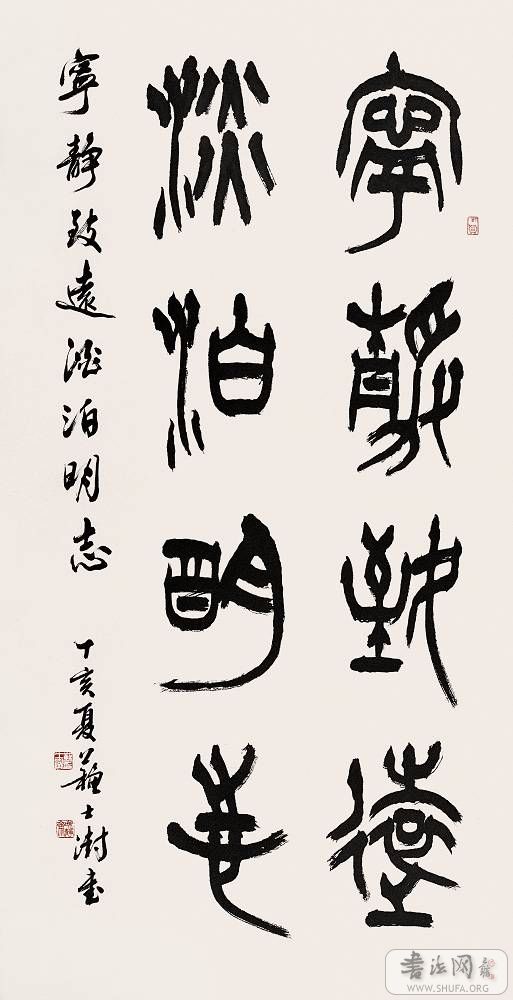 寧靜致遠
淡泊明志
寧靜致遠澹泊明志
丁亥夏蘇士澍書
書法网
WWW.SHUFA.ORG